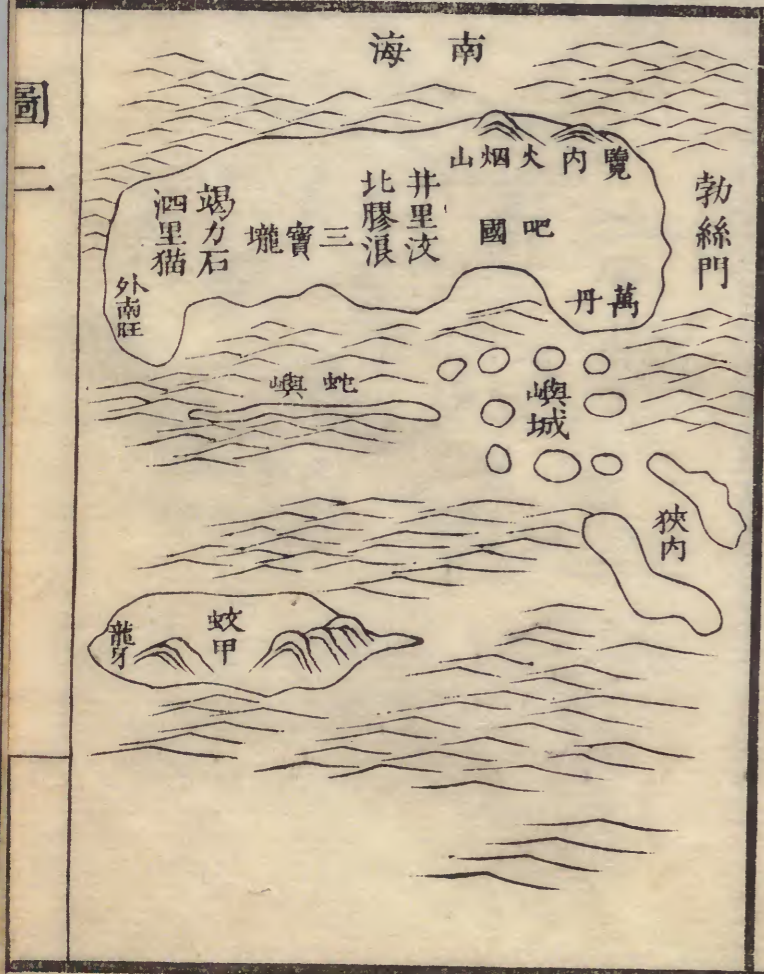 南海
勃絲門
覽內火烟山
吧國
萬丹
井里汶
北膠浪
三寶壠
竭力石
泗里猫
外南旺
嶼城
蛇嶼
狹內
蚊甲
龍牙
圖二